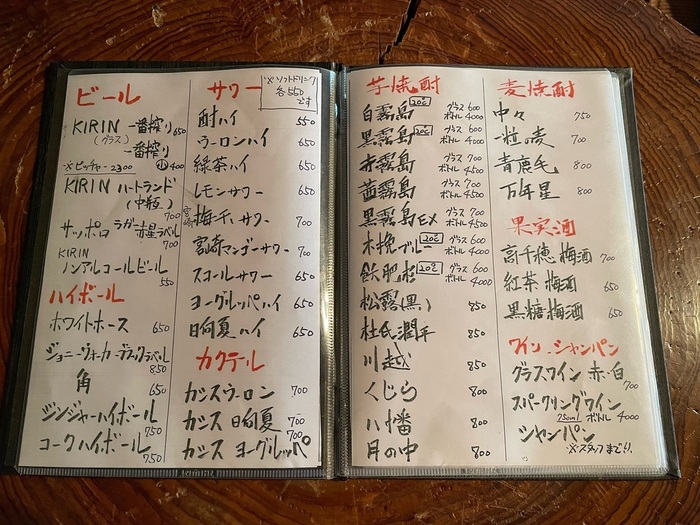 ビール
KIRIN 一番搾り 650
(グラス)
一番搾り
※ピッチャー 2300 小 400
KIRIN ハートランド
(中瓶) 700
サッポロ ラガー赤星ラベル
700
KIRIN
ノンアルコールビール
550
ハイボール
ホワイトホース 650
ジョニーウォーカーブラックラベル
850
角 650
ジンジャーハイボール
750
コークハイボール
750
サワー
※ソフトドリンク
各550
です
酎ハイ 550
ウーロンハイ 650
緑茶ハイ 650
レモンサワー 650
宮崎 梅干しサワー 700
宮崎マンゴーサワー 700
スコールサワー 650
ヨーグルッペハイ 650
日向夏ハイ 650
カクテル
カシスウーロン 700
カシス日向夏 700
カシスヨーグルッペ 700
芋焼酎
白霧島 20℃ グラス 600
ボトル 4000
黒霧島 20℃ グラス 600
ボトル 4000
赤霧島 グラス 700
ボトル 4500
茜霧島 グラス 700
ボトル 4500
黒霧島EX グラス 700
ボトル 4500
木挽ブルー 20℃ グラス 600
ボトル 4000
飫肥杉 20℃ グラス 600
ボトル 4000
松露(黒) 850
杜氏潤平 850
川越 850
くじら 800
八幡 800
月の中 800
麦焼酎
中々 750
一粒の麦 700
青鹿毛 800
万年星 800
果実酒
高千穂梅酒 700
紅茶梅酒 650
黒糖梅酒 650
ワイン・シャンパン
グラスワイン 赤・白
700
スパークリングワイン
750ml ボトル 4000
シャンパン
※スタッフまで!!